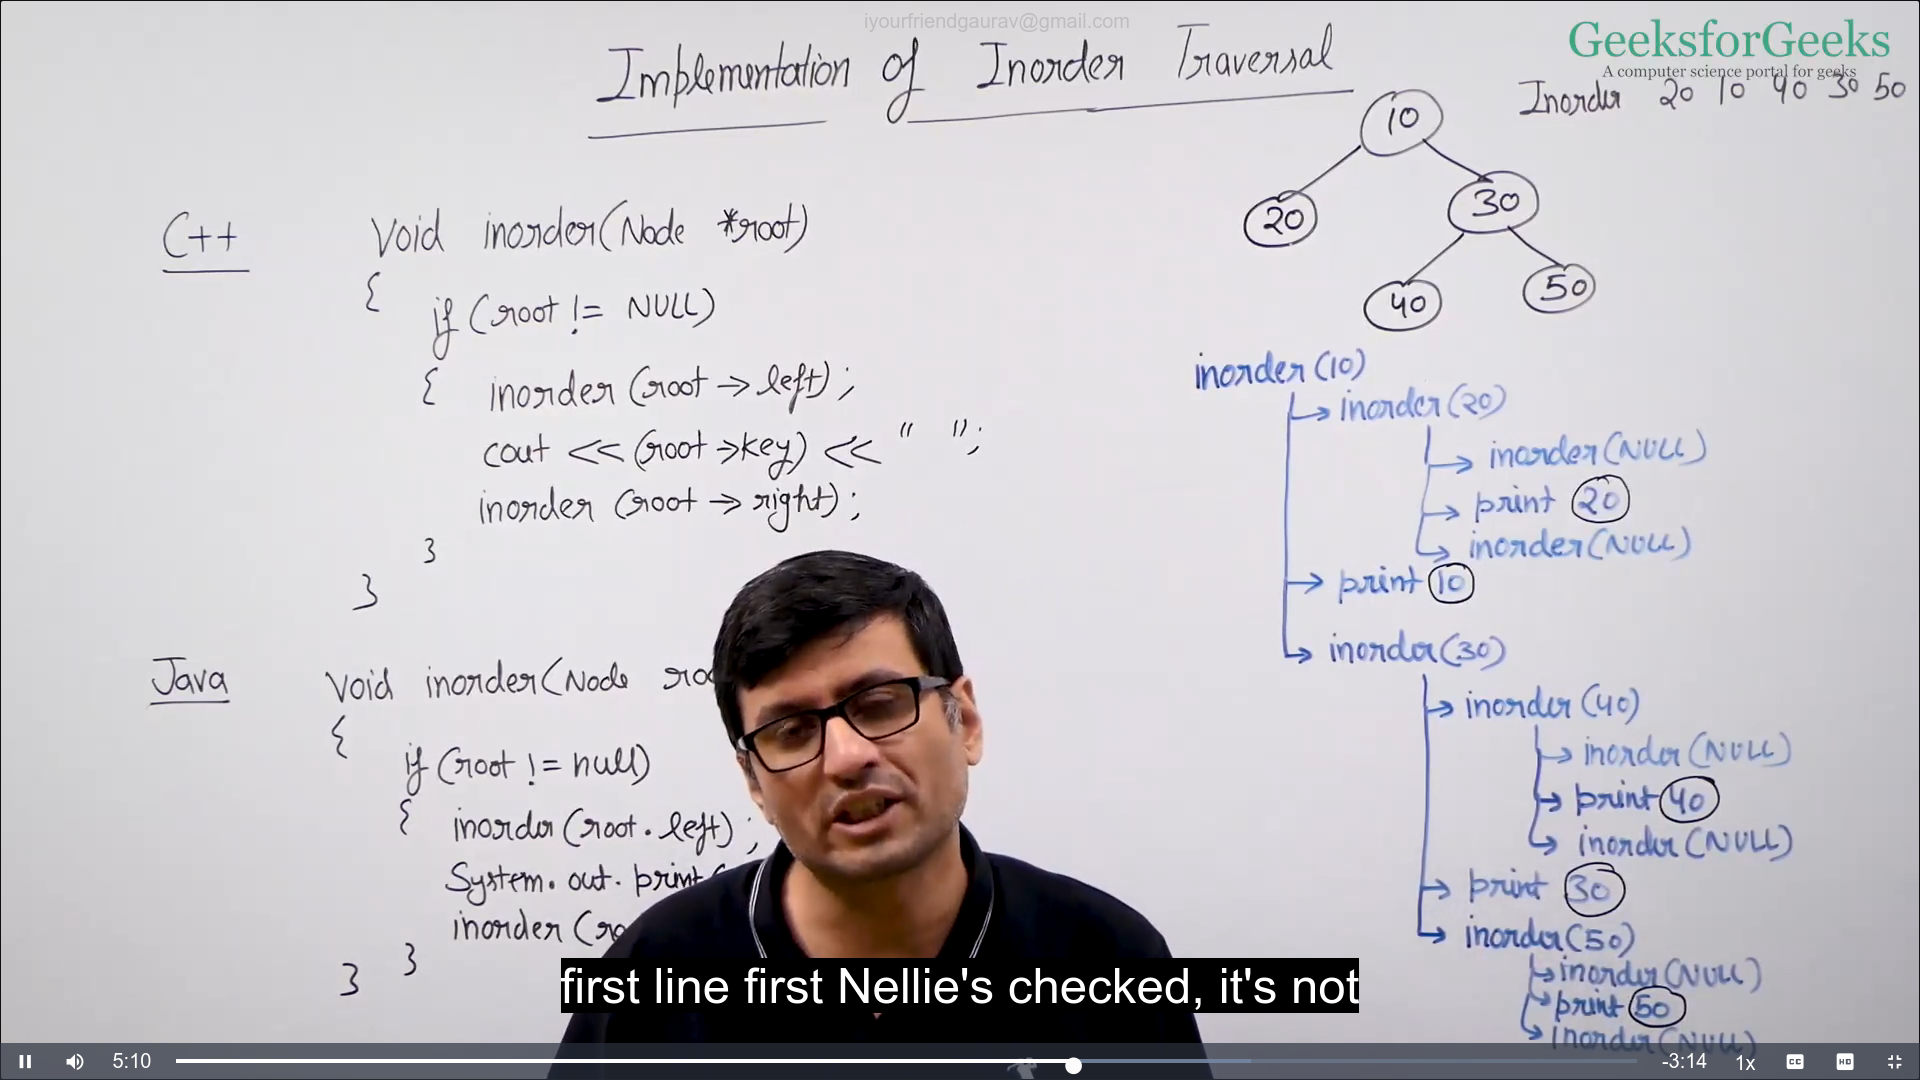 iyourfriendgaurav@gmail.com
GeeksforGeeks
A computer science portal for geeks
Implementation of Inorder Traversal
Inorder 20 10 40 30 50
10
20
30
40
50
C++
Void inorder(Node *root)
{
if (root != NULL)
{ inorder (root → left);
cout << (root →key) << " ";
inorder (root → right);
}
}
Java
Void inorder(Node
{
if (root != null)
{ inorder (root . left) ;
System. out. print(
inorder (
}
}
inorder (10)
inorder(20)
inorder(NULL)
print 20
inorder(NULL)
print 10
inorder(30)
inorder (40)
inorder(NULL)
print 40
inorder(NULL)
print 30
inorder(50)
inorder(NULL)
print 50
inorder(NULL)
first line first Nellie's checked, it's not
5:10
-3:14
1x
CC
HD